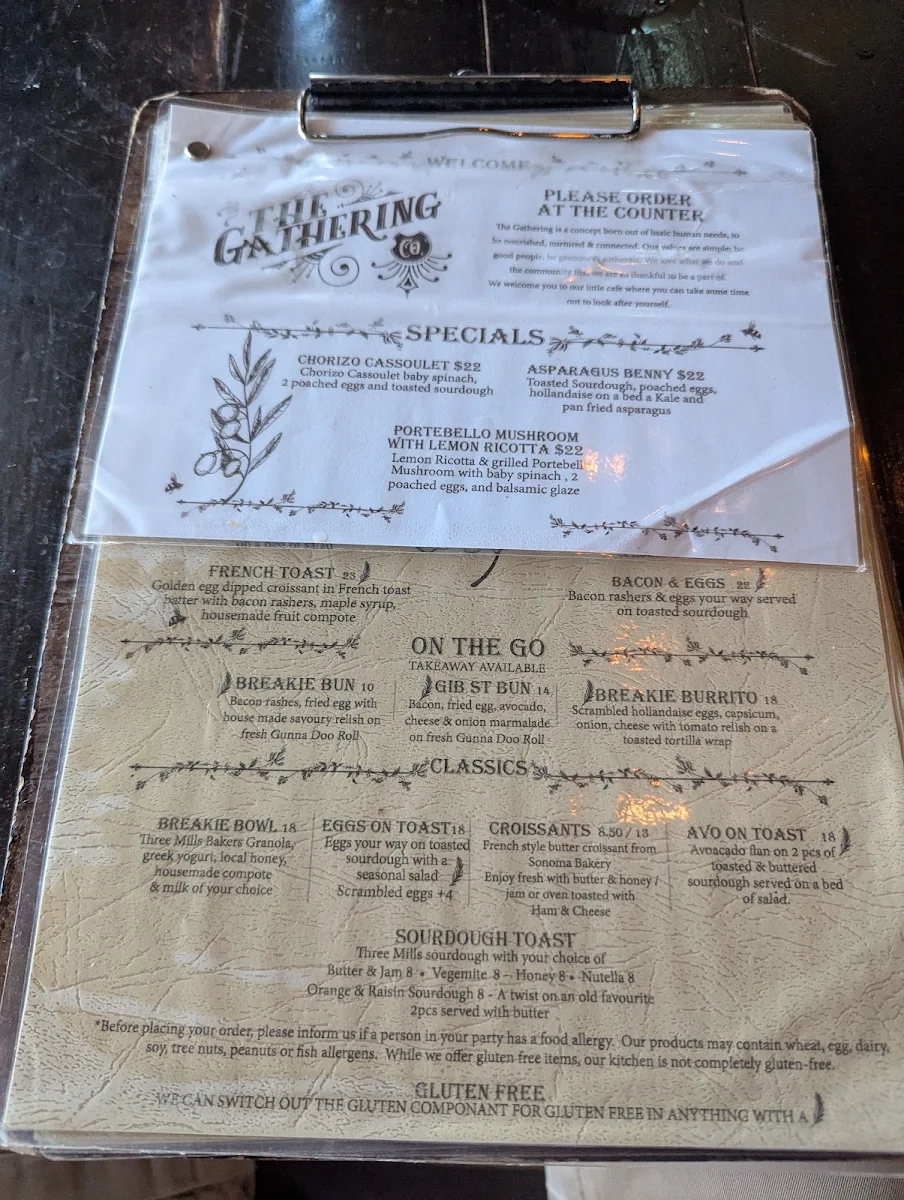 WELCOME
THE
GATHERING
CO
PLEASE ORDER
AT THE COUNTER
The Gathering is a concept born out of basic human needs, to
be nourished, nurtured & connected. Our values are simple; be
good people, be genuinely authentic. We love what we do and
the community that we are so thankful to be a part of.
We welcome you to our little cafe where you can take some time
out to look after yourself.
SPECIALS
CHORIZO CASSOULET $22
Chorizo Cassoulet baby spinach,
2 poached eggs and toasted sourdough
ASPARAGUS BENNY $22
Toasted Sourdough, poached eggs,
hollandaise on a bed a Kale and
pan fried asparagus
PORTEBELLO MUSHROOM
WITH LEMON RICOTTA $22
Lemon Ricotta & grilled Portebell
Mushroom with baby spinach , 2
poached eggs, and balsamic glaze
FRENCH TOAST 23
Golden egg dipped croissant in French toast
batter with bacon rashers, maple syrup,
housemade fruit compote
BACON & EGGS 22
Bacon rashers & eggs your way served
on toasted sourdough
ON THE GO
TAKEAWAY AVAILABLE
BREAKIE BUN 10
Bacon rashes, fried egg with
house made savoury relish on
fresh Gunna Doo Roll
GIB ST BUN 14
Bacon, fried egg, avocado,
cheese & onion marmalade
on fresh Gunna Doo Roll
BREAKIE BURRITO 18
Scrambled hollandaise eggs, capsicum,
onion, cheese with tomato relish on a
toasted tortilla wrap
CLASSICS
BREAKIE BOWL 18
Three Mills Bakers Granola,
greek yogurt, local honey,
housemade compote
& milk of your choice
EGGS ON TOAST18
Eggs your way on toasted
sourdough with a
seasonal salad
Scrambled eggs +4
CROISSANTS 8.50 / 13
French style butter croissant from
Sonoma Bakery
Enjoy fresh with butter & honey /
jam or oven toasted with
Ham & Cheese
AVO ON TOAST 18
Avoacado flan on 2 pcs of
toasted & buttered
sourdough served on a bed
of salad.
SOURDOUGH TOAST
Three Mills sourdough with your choice of
Butter & Jam 8 • Vegemite 8 – Honey 8 • Nutella 8
Orange & Raisin Sourdough 8 - A twist on an old favourite
2pcs served with butter
*Before placing your order, please inform us if a person in your party has a food allergy. Our products may contain wheat, egg, dairy,
soy, tree nuts, peanuts or fish allergens. While we offer gluten free items, our kitchen is not completely gluten-free.
GLUTEN FREE
WE CAN SWITCH OUT THE GLUTEN COMPONANT FOR GLUTEN FREE IN ANYTHING WITH A